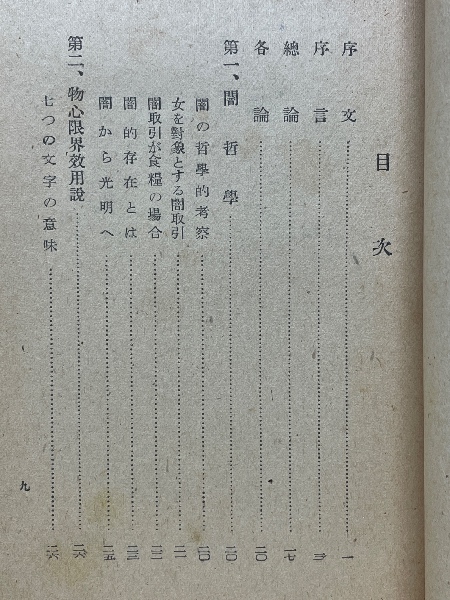 目次
序文…一
序言…三
總論…一七
各論…二〇
第一、闇哲學…二〇
闇の哲學的考察…二〇
女を對象とする闇取引…二一
闇取引が食糧の場合…二二
闇的存在とは…二三
闇から光明へ…二五
第二、物心限界效用説…二六
七つの文字の意味…二六
九